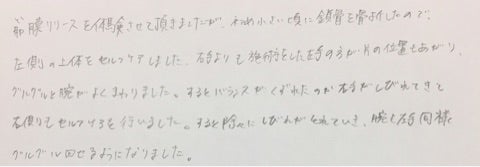 筋膜リリースを体験させて頂きましたが、小さい頃に鎖骨を骨折したので、
左側の上体をセルフケアしました。右手よりも施術をした左手の方が肩の位置もあがり、
グルグルと腕がよくまわりました。するとバランスがくずれたのか右手がしびれてきて
右側もセルフケアを行いました。すると除々にしびれがとれていき、腕も左右同様
グルグル回せるようになりました。